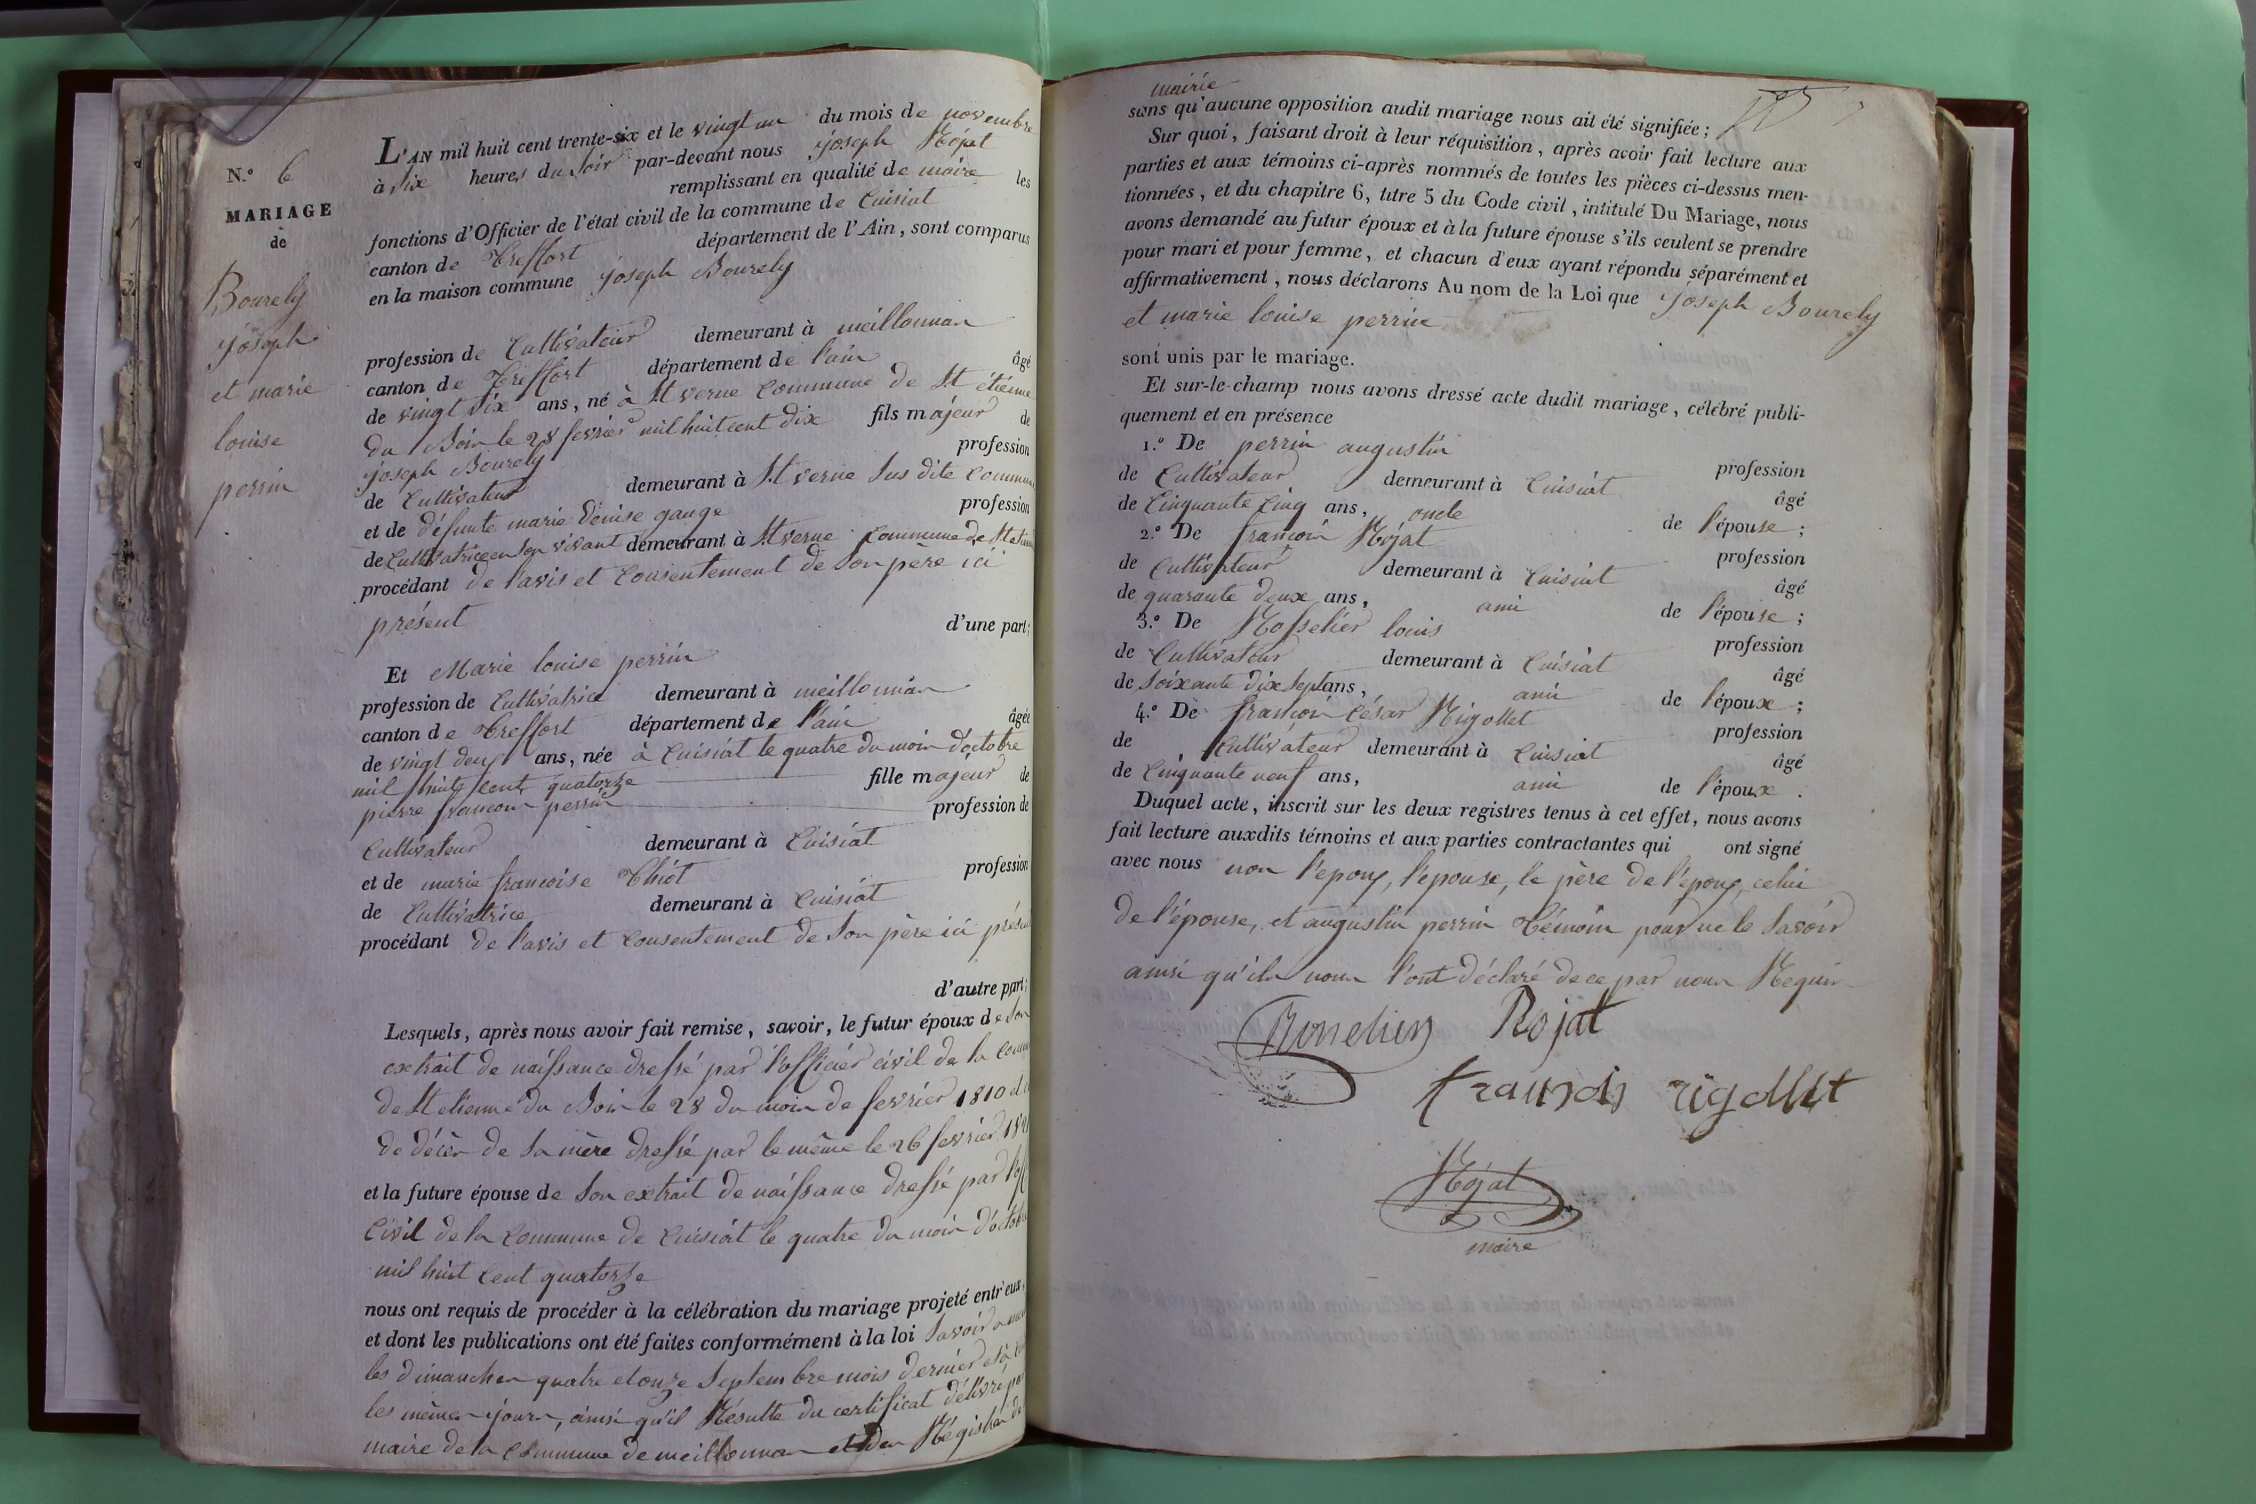 N.º 6
MARIAGE
de
Bourely
joseph
et marie
louise
perrin
L'AN mil huit cent trente-six et le vingt un du mois de novembre
à six heures du soir par-devant nous joseph Rojat
remplissant en qualité de maire les
fonctions d'Officier de l'état civil de la commune de Cuisiat
canton de Treffort département de l'Ain, sont comparus
en la maison commune joseph Bourely
profession de Cultivateur demeurant à meillonnan
canton de Treffort département de l'ain âgé
de vingt six ans, né à St verne commune de St étienne
du Bois le 28 fevrier mil huit cent dix fils majeur de
joseph Bourely profession
de Cultivateur demeurant à St verne sus dite commune
et de défunte marie denise gauge profession
de Cultivatrice en son vivant demeurant à St verne commune de St etienne
procédant de l'avis et consentement de son père ici
présent d'une part;
Et Marie louise perrin
profession de Cultivatrice demeurant à meillonnan
canton de Treffort département de l'ain âgée
de vingt deux ans, née à Cuisiat le quatre du mois d'octobre
mil huit cent quatorze fille majeur de
pierre francois perrin profession de
Cultivateur demeurant à Cuisiat
et de marie francoise Thiot profession
de Cultivatrice demeurant à Cuisiat
procédant de l'avis et consentement de son père ici présent
d'autre part;
Lesquels, après nous avoir fait remise, savoir, le futur époux de son
extrait de naissance dressé par l'officier civil de la
de St etienne du Bois le 28 du mois de fevrier 1810 et
de décès de sa mère dressé par le même le 26 fevrier
et la future épouse de son extrait de naissance dressé par
Civil de la commune de Cuisiat le quatre du mois d'octobre
mil huit cent quatorze
nous ont requis de procéder à la célébration du mariage projeté entr'eux,
et dont les publications ont été faites conformément à la loi savoir
les dimanches quatre et onze septembre mois dernier et à
les mêmes jours, ainsi qu'il Résulte du certificat délivré par
maire de la commune de meillonnan et des Régistres de
mairie
sans qu'aucune opposition audit mariage nous ait été signifiée;
Sur quoi, faisant droit à leur réquisition, après avoir fait lecture aux
parties et aux témoins ci-après nommés de toutes les pièces ci-dessus men-
tionnées, et du chapitre 6, titre 5 du Code civil, intitulé Du Mariage, nous
avons demandé au futur époux et à la future épouse s'ils veulent se prendre
pour mari et pour femme, et chacun d'eux ayant répondu séparément et
affirmativement, nous déclarons Au nom de la Loi que joseph Bourely
et marie louise perrin
sont unis par le mariage.
Et sur-le-champ nous avons dressé acte dudit mariage, célébré publi-
quement et en présence
1.º De perrin augustin profession
de Cultivateur demeurant à Cuisiat âgé
de Cinquante cinq ans, oncle de l'épouse;
2.º De francois Rojat profession
de Cultivateur demeurant à Cuisiat âgé
de quarante deux ans, ami de l'épouse;
3.º De Rosselier louis profession
de Cultivateur demeurant à Cuisiat âgé
de soixante dix sept ans, ami de l'époux;
4.º De francois césar Rigollet profession
de Cultivateur demeurant à Cuisiat âgé
de Cinquante neuf ans, ami de l'époux.
Duquel acte, inscrit sur les deux registres tenus à cet effet, nous avons
fait lecture auxdits témoins et aux parties contractantes qui ont signé
avec nous non l'epoux, l'epouse, le père de l'epoux, celui
de l'épouse, et augustin perrin témoin pour ne le savoir
ainsi qu'ils nous l'ont déclaré de ce par nous Requis
Rosselier Rojat
francois rigollet
Rojat
maire